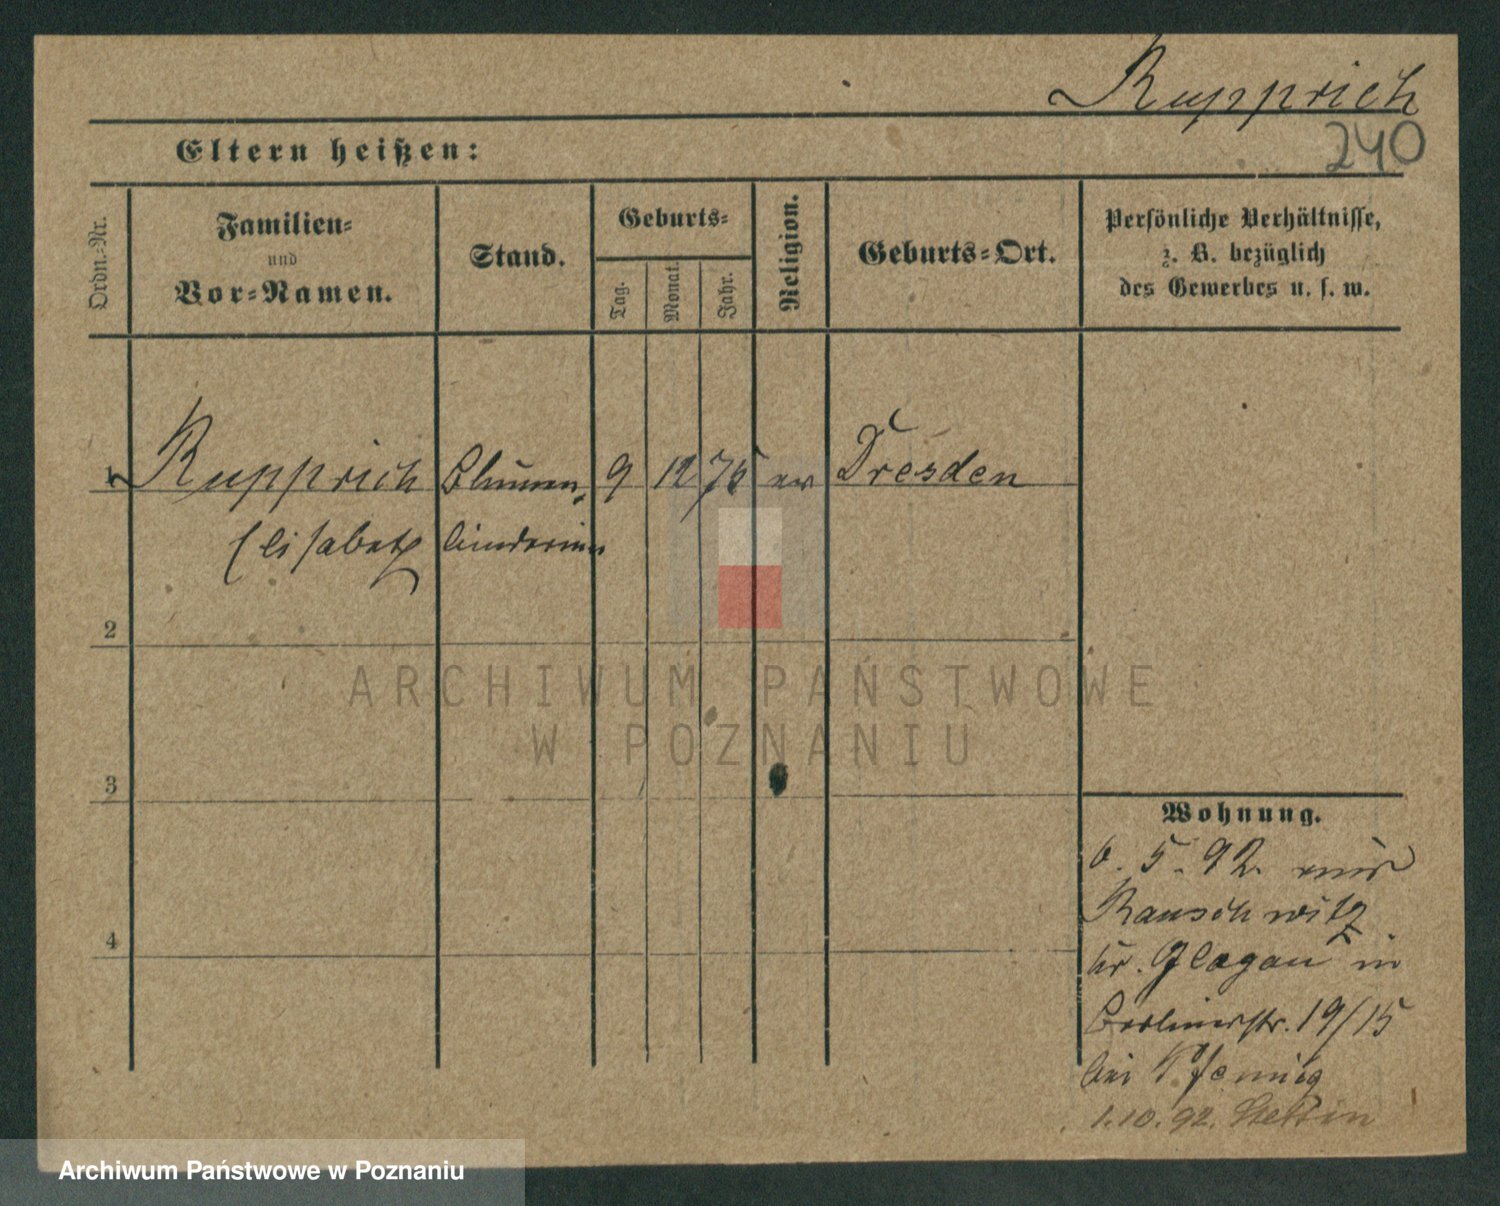 Rupprich
240
Eltern heißen:
Ordn.-Nr.
Familien-
und
Vor-Namen.
Stand.
Geburts-
Tag.
Monat.
Jahr.
Religion.
Geburts-Ort.
Persönliche Verhältnisse,
z. B. bezüglich
des Gewerbes u. s. w.
1 Rupprich Blumen 9 12 75 ev Dresden
Elisabeth binderin
2
3
4
ARCHIWUM PAŃSTWOWE
W POZNANIU
Wohnung.
6. 5. 92. aus
Rauschwitz
kr. Glogau in
Berlinerstr. 19/15
bei Pfennig
1.10.92. Stettin
Archiwum Państwowe w Poznaniu